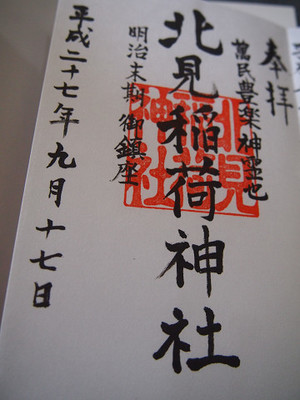 奉拝
萬民豊楽神霊也
北見稲荷神社
明治末期 御鎮座
平成二十七年九月十七日